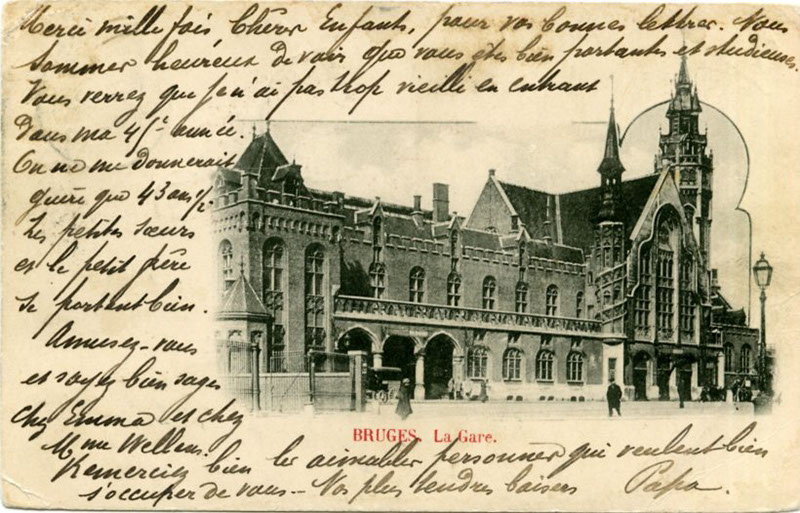 Merci mille fois Chérs Enfants, pour vos bonnes lettres. Nous
sommes heureux de voir que vous êtes bien portantes et studieuses.
Vous verrez que je n'ai pas trop vieilli en entrant
dans ma 45e année.
On ne me donnerait
guère que 43 ans 1/2
Les petites sœurs
et le petit frère
se portent bien.
Amusez-vous
et soyez bien sages
chez Emma et chez
Mme Wellens.
Remerciez bien les aimables personnes qui veulent bien
s'occuper de vous.- Nos plus tendres baisers Papa.
BRUGES. La Gare.